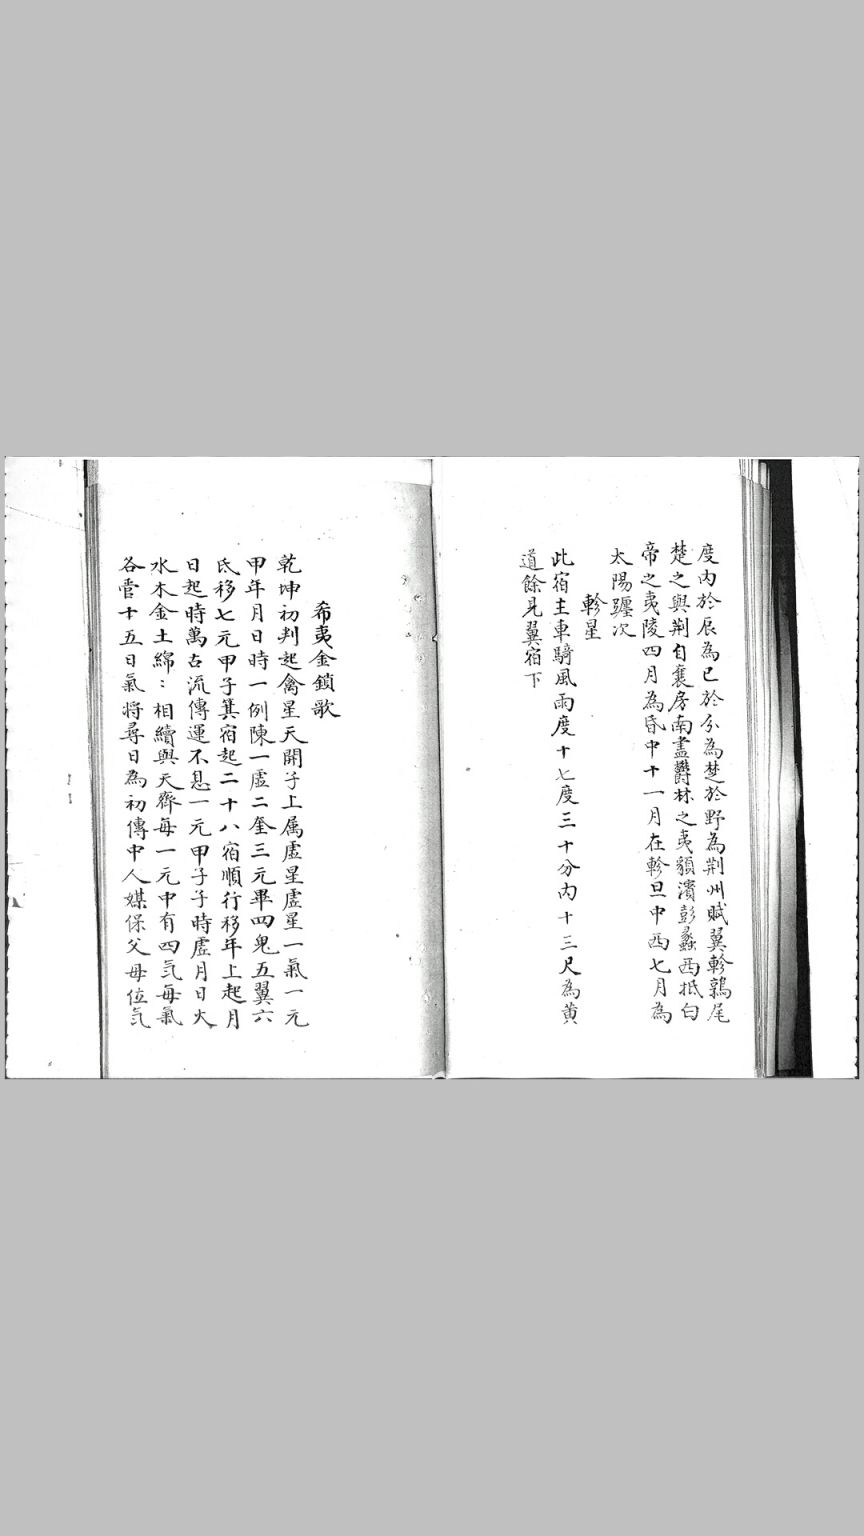 度内於辰為巳於分為楚於野為荆州賦翼軫鶉尾
楚之與荆自襄房南盡欝林之夷貊濱彭蠡西抵白
帝之夷陵四月為昏中十一月在軫旦中西七月為
太陽躔次
軫星
此宿主車騎風雨度十七度三十分内十三尺為黄
道餘見翼宿下
希夷金鎖歌
乾坤初判起禽星天開子上属虚星虚星一氣一元
甲年月日時一例陳一虚二奎三元畢四鬼五翼六
氐移七元甲子箕宿起二十八宿順行移年上起月
日起時萬古流傳運不息一元甲子子時虚月日火
水木金土綿〻相續與天齊每一元中有四炁每氣
各管十五日氣将尋日為初傳中人媒保父母位炁